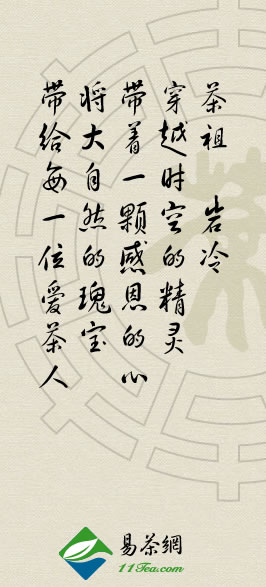 茶祖 岩冷
穿越时空的精灵
带着一颗感恩的心
将大自然的瑰宝
带给每一位爱茶人
易茶網
11Tea.com